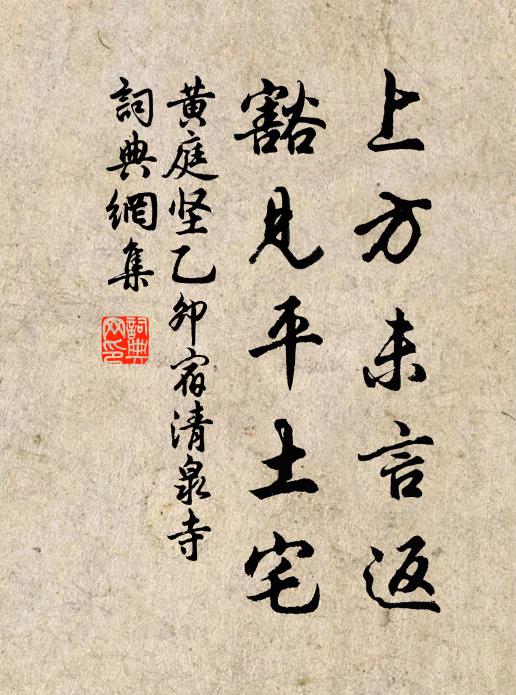 上方未言返
豁見平土宅
黄庭坚乙卯宿清泉寺
詞典網集
詞典網印